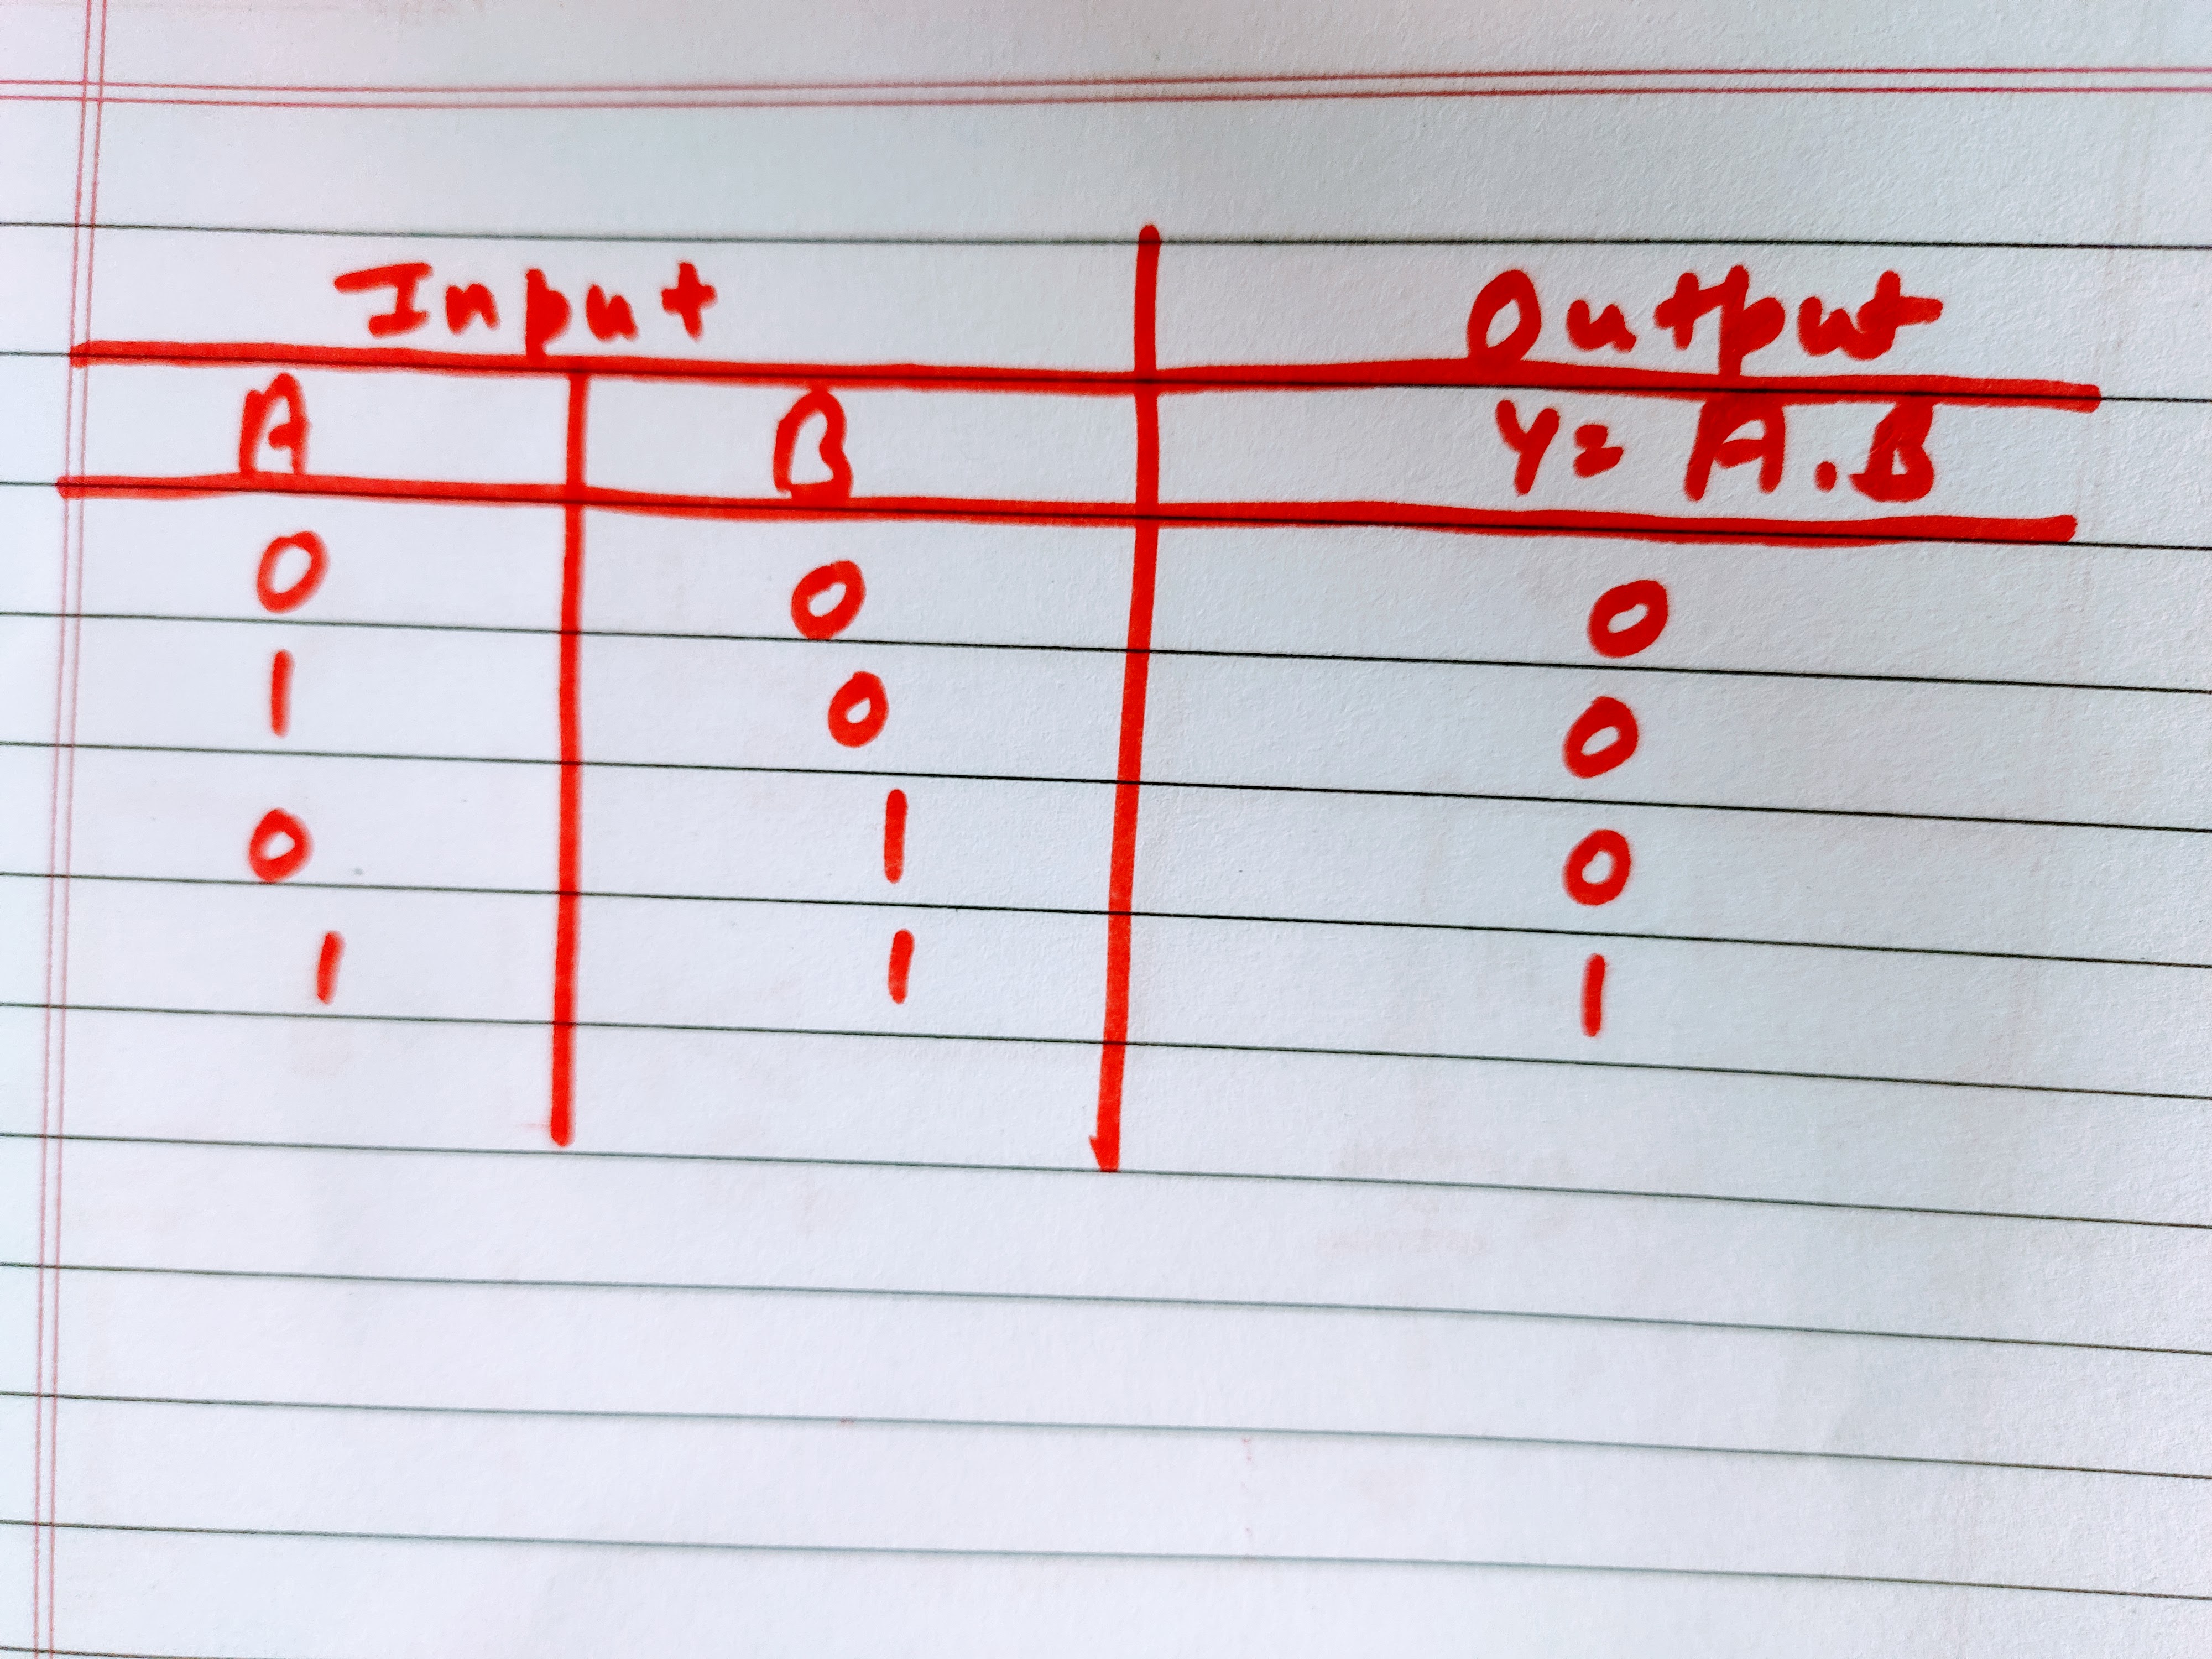 Input Output
A B Y= A.B
0 0 0
1 0 0
0 1 0
1 1 1